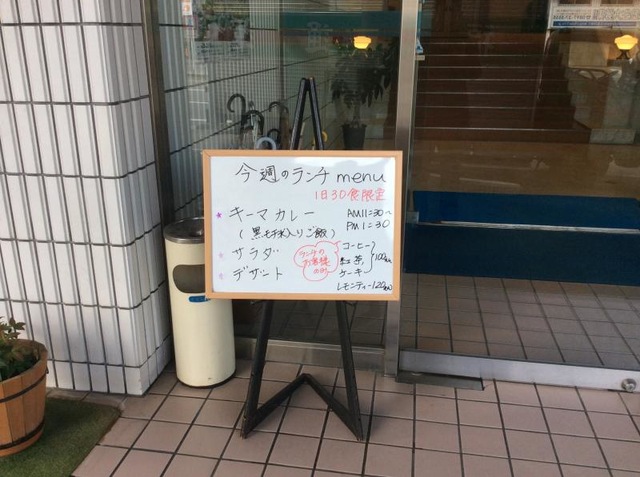 今週のランチ menu
1日30食限定
キーマカレー
AM11:30~
PM1:30
(黒モチ米入りご飯)
サラダ
デザート
ランチの
お客様
のみ
コーヒー
紅茶
ケーキ
レモンティー120